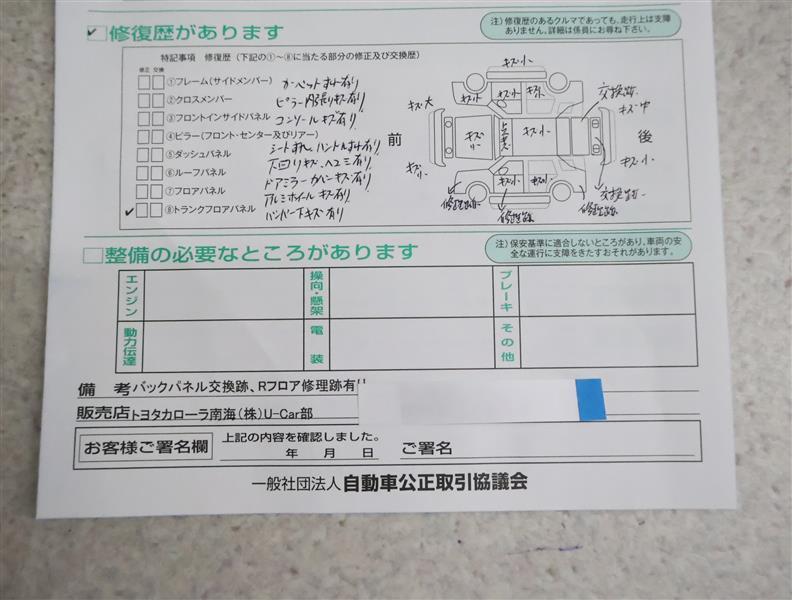 ✓修復歴があります
注）修復歴のあるクルマであっても、走行上は支障ありません。詳細は係員にお尋ね下さい。
特記事項 修復歴（下記の①〜⑧に当たる部分の修正及び交換歴）
修正 交換
①フレーム（サイドメンバー） カーペットすれ有り
②クロスメンバー ピラー内張りキズ有り
③フロントインサイドパネル コンソールキズ有り
④ピラー（フロント・センター及びリアー） シートすれ、ハンドルすれ有り
⑤ダッシュパネル 下回りキズ、ヘコミ有り
⑥ルーフパネル ドアミラーカバーキズ有り
⑦フロアパネル アルミホイールキズ有り
✓⑧トランクフロアパネル バンパー下キズ有り
キズ小
キズ大
キズ小
キズ小
交換跡
キズ中
前
キズ小
キズ小
後
キズ小
キズ小
キズ小
交換跡
修理跡
修理跡
修理跡
整備の必要なところがあります
注）保安基準に適合しないところがあり、車両の安全な運行に支障をきたすおそれがあります。
エンジン
操向・懸架
ブレーキ
動力伝達
電装
その他
備考 バックパネル交換跡、Rフロア修理跡有り
販売店 トヨタカローラ南海（株）U-Car部
お客様ご署名欄 上記の内容を確認しました。
年 月 日 ご署名
一般社団法人 自動車公正取引協議会